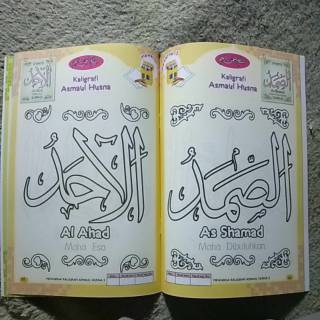 Kaligrafi
Asmaul Husna
الأحد
Al Ahad
Maha Esa
Kaligrafi
Asmaul Husna
الصَّمَدُ
As Shamad
Maha Dibutuhkan